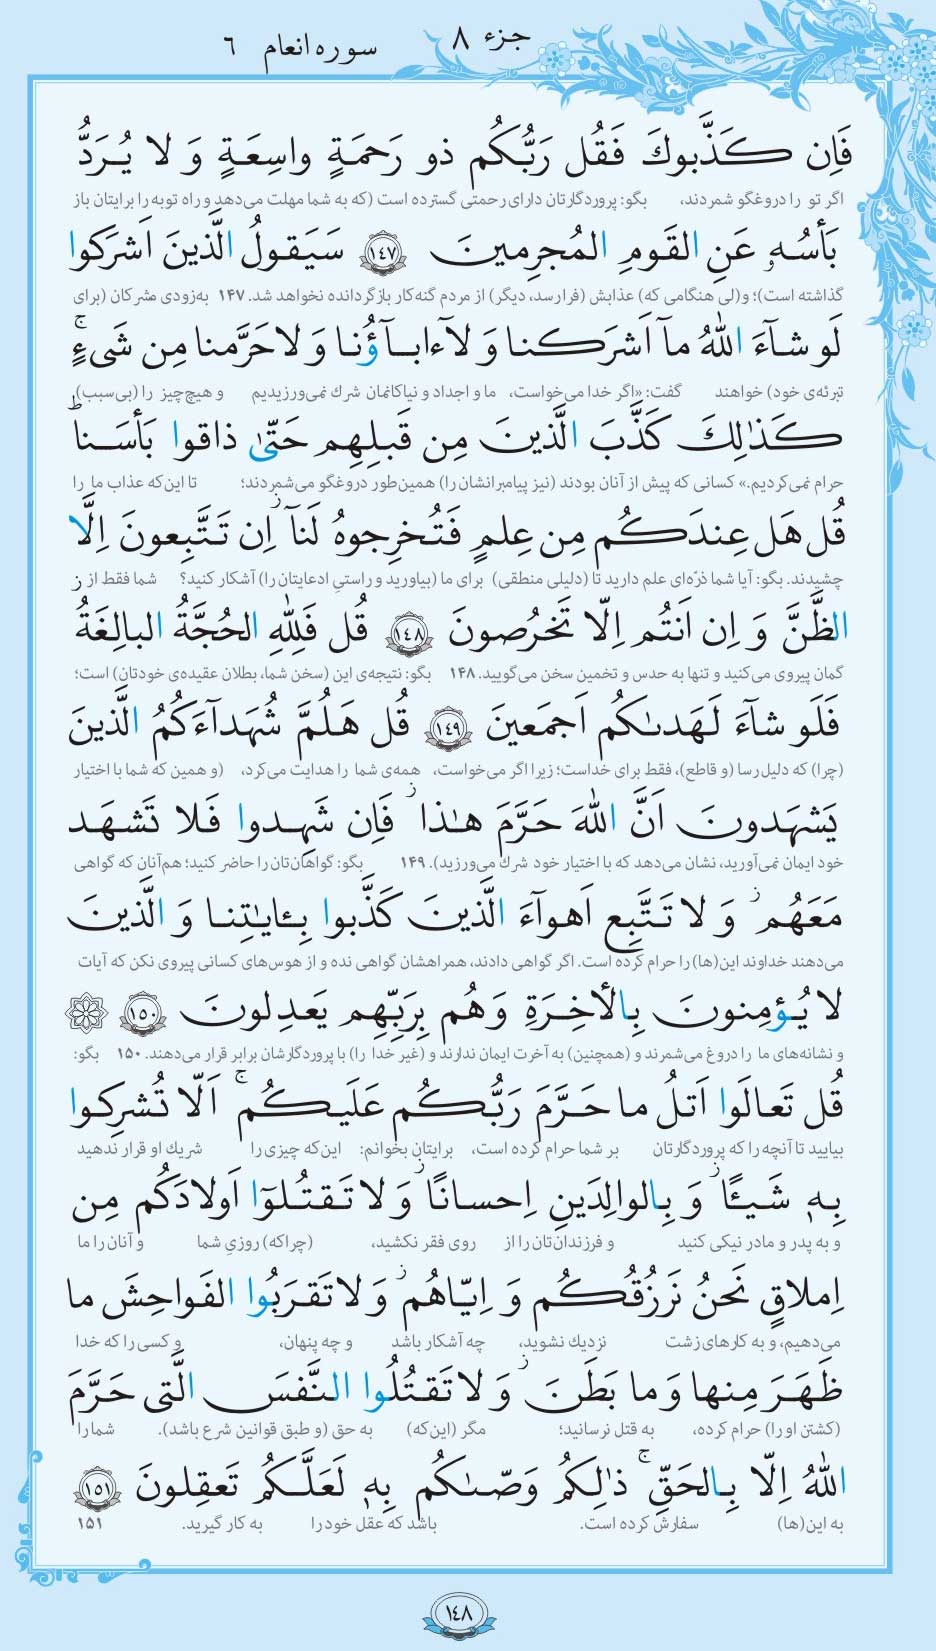 جزء ۸
سوره انعام ۶
فَاِن كَذَّبوكَ فَقُل رَبُّكُم ذو رَحمَةٍ واسِعَةٍ وَ لا يُرَدُّ
اگر تو را دروغگو شمردند، بگو: پروردگارتان دارای رحمتی گسترده است (که به شما مهلت می‌دهد و راه توبه را برایتان باز
بَأسُهٗ عَنِ القَومِ المُجرِمينَ ﴿۱۴۷﴾ سَيَقولُ الَّذينَ اَشرَكوا
گذاشته است)؛ و(لی هنگامی که) عذابش (فرارسد، دیگر) از مردم گنه‌کار بازگردانده نخواهد شد. ۱۴۷ به‌زودی مشرکان (برای
لَو شآءَ اللّٰهُ مآ اَشرَكنا وَ لآ ءابآؤُنا وَ لا حَرَّمنا مِن شَىءٍ ۚ
تبرئه‌ی خود) خواهند گفت: «اگر خدا می‌خواست، ما و اجداد و نیاکانمان شرك نمی‌ورزیدیم و هیچ‌چیز را (بی‌سبب)
كَذٰلِكَ كَذَّبَ الَّذينَ مِن قَبلِهِم حَتّىٰ ذاقوا بَأسَنا ؕ
حرام نمی‌کردیم.» کسانی که پیش از آنان بودند (نیز پیامبرانشان را) همین‌طور دروغگو می‌شمردند؛ تا این‌که عذاب ما را
قُل هَل عِندَكُم مِن عِلمٍ فَتُخرِجوهُ لَنآ ز اِن تَتَّبِعونَ اِلَّا
چشیدند. بگو: آیا شما ذرّه‌ای علم دارید تا (دلیلی منطقی) برای ما (بیاورید و راستیِ ادعایتان را) آشکار کنید؟ شما فقط از
الظَّنَّ وَ اِن اَنتُم اِلّا تَخرُصونَ ﴿۱۴۸﴾ قُل فَلِلّٰهِ الحُجَّةُ البالِغَةُ ز
گمان پیروی می‌کنید و تنها به حدس و تخمین سخن می‌گویید. ۱۴۸ بگو: نتیجه‌ی این (سخن شما، بطلان عقیده‌ی خودتان) است؛
فَلَو شآءَ لَهَدىٰكُم اَجمَعينَ ﴿۱۴۹﴾ قُل هَلُمَّ شُهَدآءَكُمُ الَّذينَ
(چرا) که دلیل رسا (و قاطع)، فقط برای خداست؛ زیرا اگر می‌خواست، همه‌ی شما را هدایت می‌کرد، (و همین که شما با اختیار
يَشهَدونَ اَنَّ اللّٰهَ حَرَّمَ هٰذا ز فَاِن شَهِدوا فَلا تَشهَد
خود ایمان نمی‌آورید، نشان می‌دهد که با اختیار خود شرك می‌ورزید). ۱۴۹ بگو: گواهان‌تان را حاضر کنید؛ هم‌آنان که گواهی
مَعَهُم ز وَ لا تَتَّبِع اَهوآءَ الَّذينَ كَذَّبوا بِـٔايٰتِنا وَ الَّذينَ
می‌دهند خداوند این(ها) را حرام کرده است. اگر گواهی دادند، همراهشان گواهی نده و از هوس‌های کسانی پیروی نکن که آیات
لا يُؤمِنونَ بِالأخِرَةِ وَ هُم بِرَبِّهِم يَعدِلونَ ﴿۱۵۰﴾
و نشانه‌های ما را دروغ می‌شمرند و (همچنین) به آخرت ایمان ندارند و (غیر خدا را) با پروردگارشان برابر قرار می‌دهند. ۱۵۰ بگو:
قُل تَعالَوا اَتلُ ما حَرَّمَ رَبُّكُم عَلَيكُم ۚ اَلّا تُشرِكوا
بیایید تا آنچه را که پروردگارتان بر شما حرام کرده است، برایتان بخوانم: این‌که چیزی را شریك او قرار ندهید
بِهٖ شَيـًٔا ز وَ بِالوالِدَينِ اِحسانًا ز وَ لا تَقتُلوٓا اَولادَكُم مِن
و به پدر و مادر نیکی کنید و فرزندان‌تان را از روی فقر نکشید، (چراکه) روزیِ شما و آنان را ما
اِملاقٍ نَحنُ نَرزُقُكُم وَ اِيّاهُم ز وَ لا تَقرَبُوا الفَواحِشَ ما
می‌دهیم، و به کارهای زشت نزدیك نشوید، چه آشکار باشد و چه پنهان، و کسی را که خدا
ظَهَرَ مِنها وَ ما بَطَنَ ز وَ لا تَقتُلُوا النَّفسَ الَّتى حَرَّمَ
(کشتن او را) حرام کرده، به قتل نرسانید؛ مگر (این‌که) به حق (و طبق قوانین شرع باشد). شما را
اللّٰهُ اِلّا بِالحَقِّ ۚ ذٰلِكُم وَصّىٰكُم بِهٖ لَعَلَّكُم تَعقِلونَ ﴿۱۵۱﴾
به این(ها) سفارش کرده است. باشد که عقل خود را به کار گیرید. ۱۵۱
۱۴۸